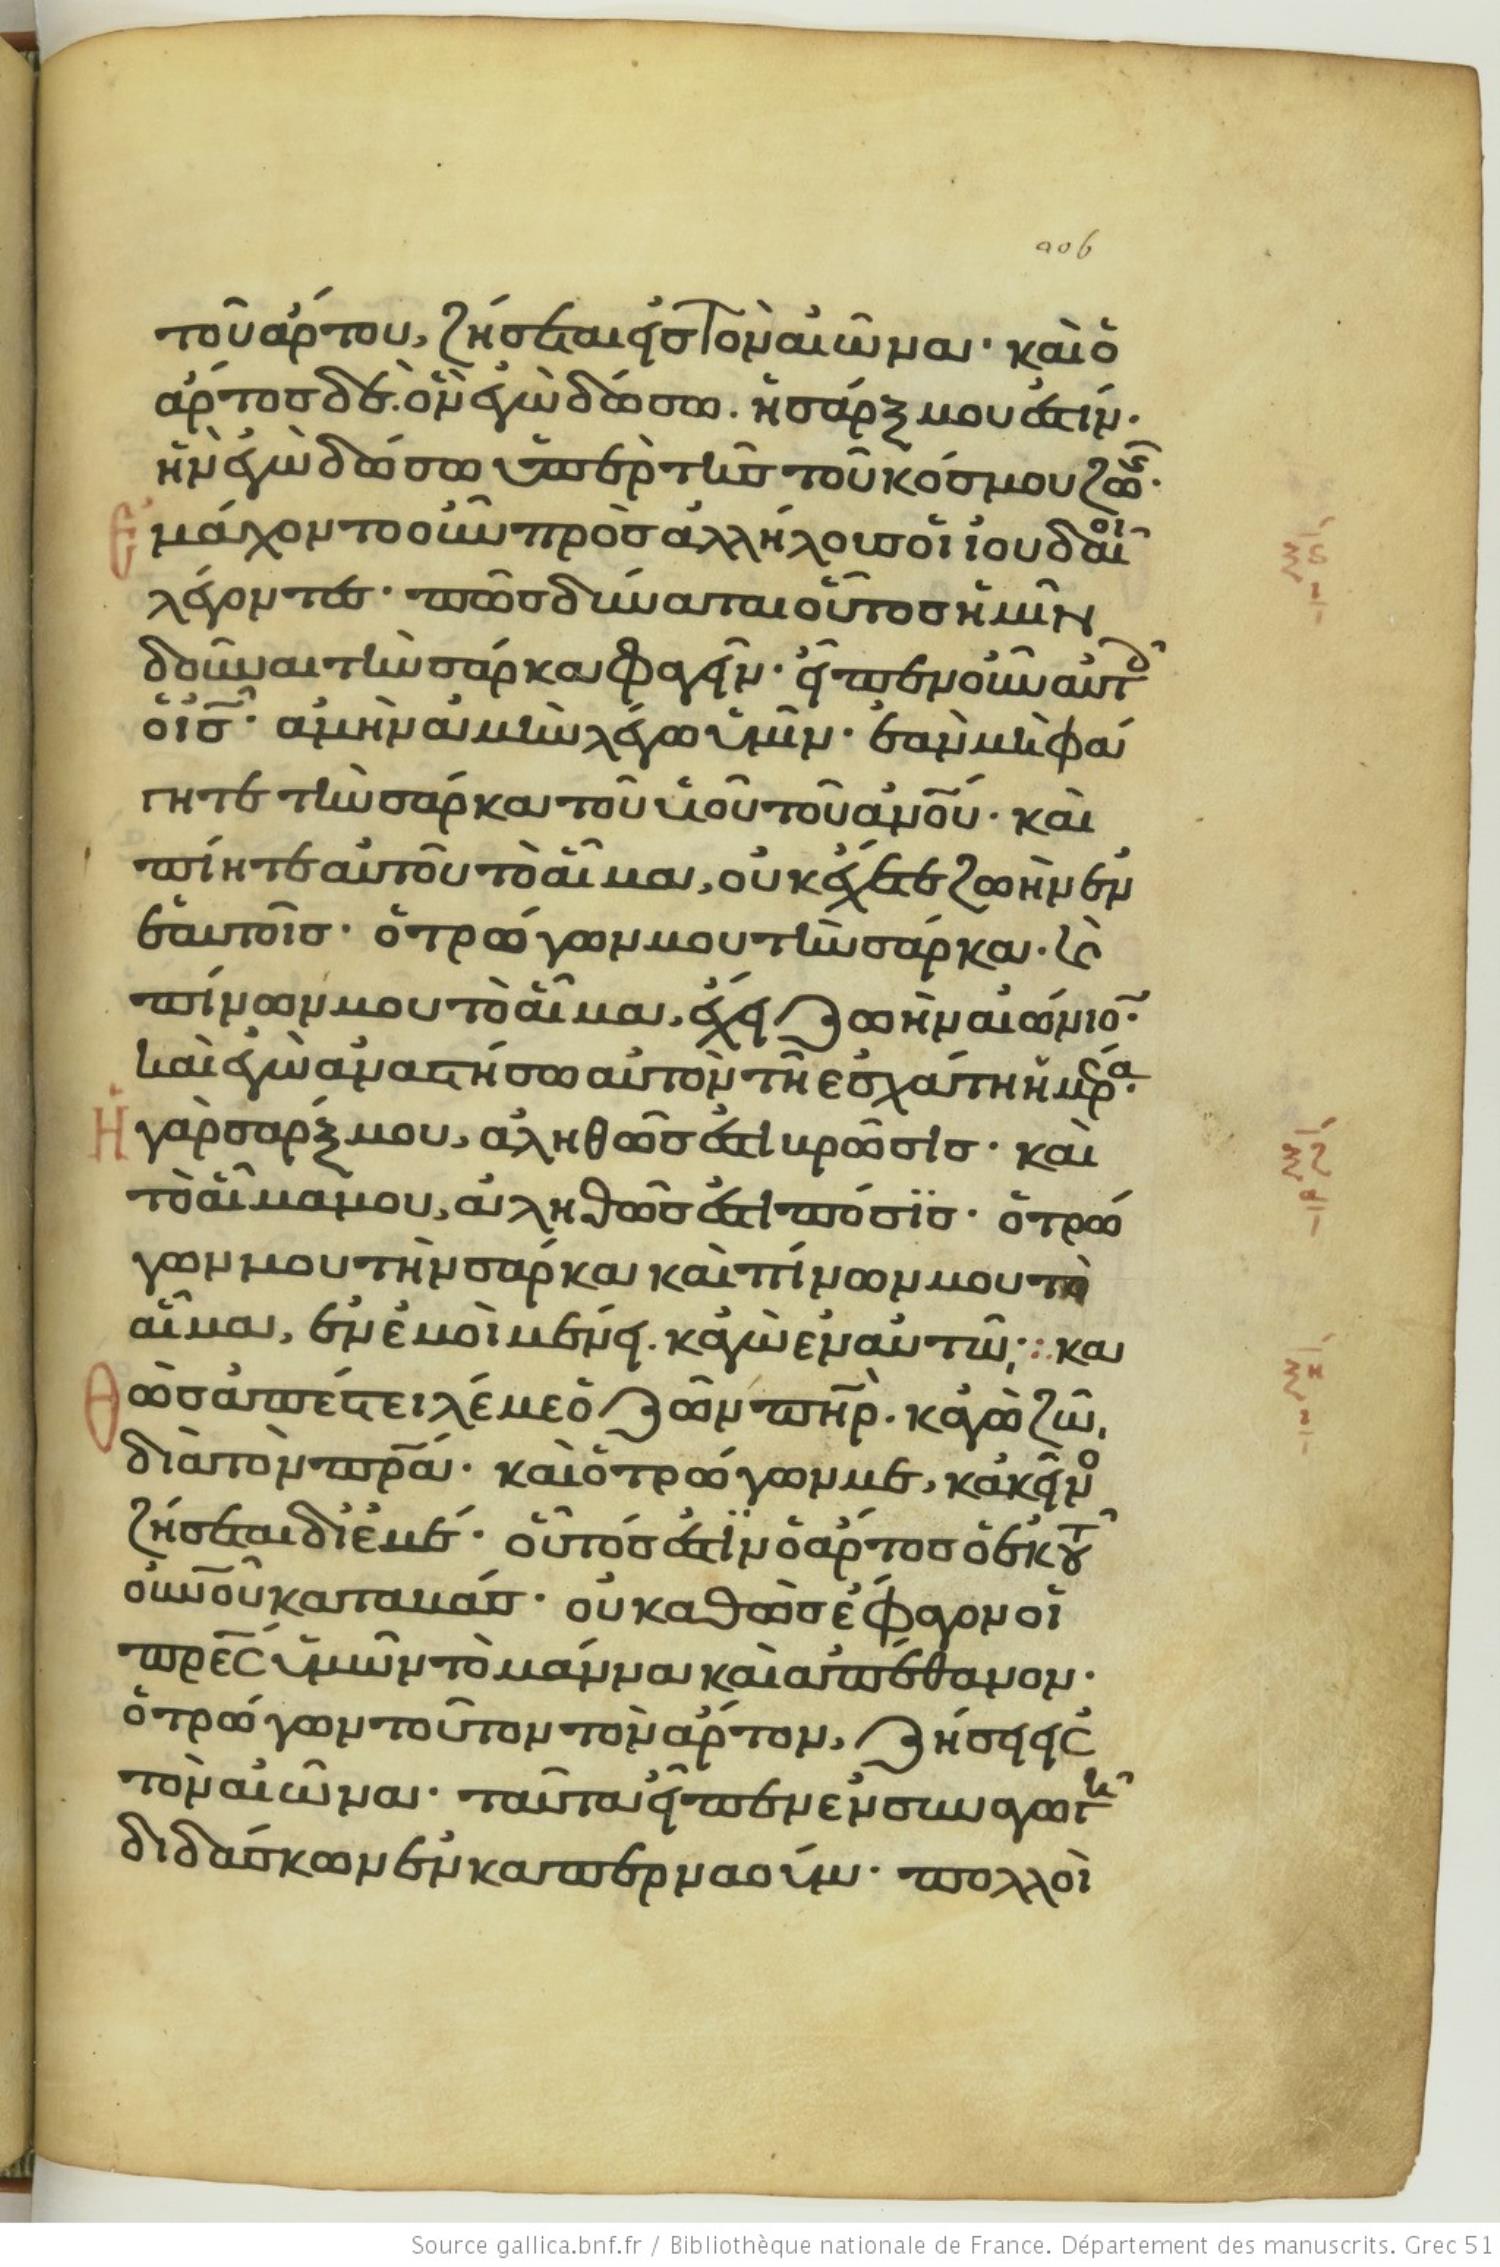 206
τοῦ ἄρτου, ζήσεται εἰς τὸν αἰῶνα· καὶ ὁ
ἄρτος δὲ. ὃν ἐγὼ δώσω. ἡ σάρξ μου ἐστίν·
ἣν ἐγὼ δώσω ὑπὲρ τῆς τοῦ κόσμου ζωῆς·
Ἐμάχοντο οὖν πρὸς ἀλλήλους οἱ ἰουδαῖοι
λέγοντες· πῶς δύναται οὗτος ἡμῖν
δοῦναι τὴν σάρκα φαγεῖν· εἶπεν οὖν αὐτοῖς
ὁ ἰς· ἀμὴν ἀμὴν λέγω ὑμῖν· ἐὰν μὴ φά
γητε τὴν σάρκα τοῦ υἱοῦ τοῦ ανου· καὶ
πίητε αὐτοῦ τὸ αἷμα, οὐκ ἔχετε ζωὴν ἐν
ἑαυτοῖς· ὁ τρώγων μου τὴν σάρκα· καὶ
πίνων μου τὸ αἷμα, ἔχει ζωὴν αἰώνιον·
καὶ ἐγὼ ἀναστήσω αὐτὸν τῇ ἐσχάτῃ ἡμέρα·
Ἡ γὰρ σάρξ μου, ἀληθῶς ἐστι βρῶσις· καὶ
τὸ αἷμα μου, ἀληθῶς ἐστι πόσϊς· ὁ τρώ
γων μου τὴν σάρκα καὶ πίνων μου τὸ
αἷμα, ἐν ἐμοὶ μένει. κἀγὼ ἐν αὐτῶ· κα
Θὼς ἀπέστειλέ με ὁ ζῶν πηρ. κἀγὼ ζῶ,
διὰ τὸν πρα· καὶ ὁ τρώγων με, κἀκεῖνος
ζήσεται δι ἐμέ· οὗτός ἐστϊν ὁ ἄρτος ὁ ἐκ τοῦ
οὐνοῦ καταβάς· οὐ καθὼς ἔφαγον οἱ
πρες ὑμῶν τὸ μάννα καὶ ἀπέθανον·
ὁ τρώγων τοῦτον τὸν ἄρτον, ζήσει εἰς
τὸν αἰῶνα· ταῦτα εἶπεν ἐν συναγωγῆ
διδάσκων ἐν καπερναούμ· πολλοὶ
ξς
ξζ
ξη